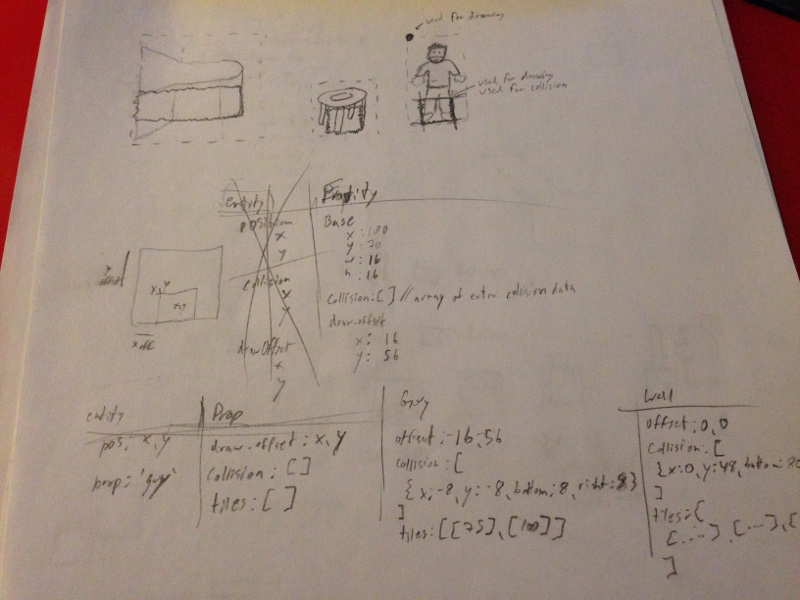 used for drawing
used for drawing
used for collision
entity
position
x
y
collision
x
y
drawOffset
x
y
Entity
Base
x: 100
y: 70
w: 16
h: 16
Collision: [ ] // array of extra collision data
draw-offset
x: 16
y: 56
x, y
x, y
x off
entity
pos: x, y
prop: 'guy'
Prop
draw-offset: x, y
collision: [ ]
tiles: [ ]
Guy
offset: -16, 56
collision: [
{x: -8, y: -8, bottom: 8, right: 8}
]
tiles: [[75], [100]]
Wall
offset: 0, 0
Collision: [
{x: 0, y: 48, bottom: 80
]
tiles: [
[...], [...], [
]